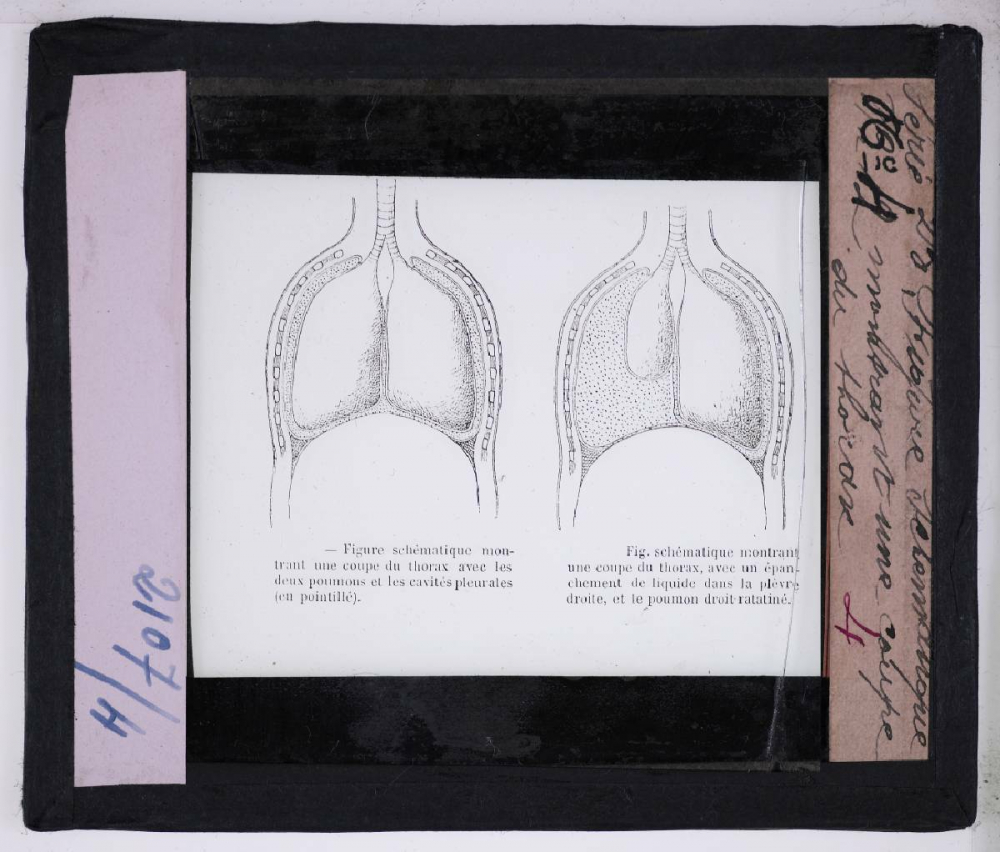 — Figure schématique mon-
trant une coupe du thorax avec les
deux poumons et les cavités pleurales
(en pointillé).
Fig. schématique montrant
une coupe du thorax, avec un épan-
chement de liquide dans la plèvre
droite, et le poumon droit ratatiné.
montrant une coupe
du thorax
4
2107/4